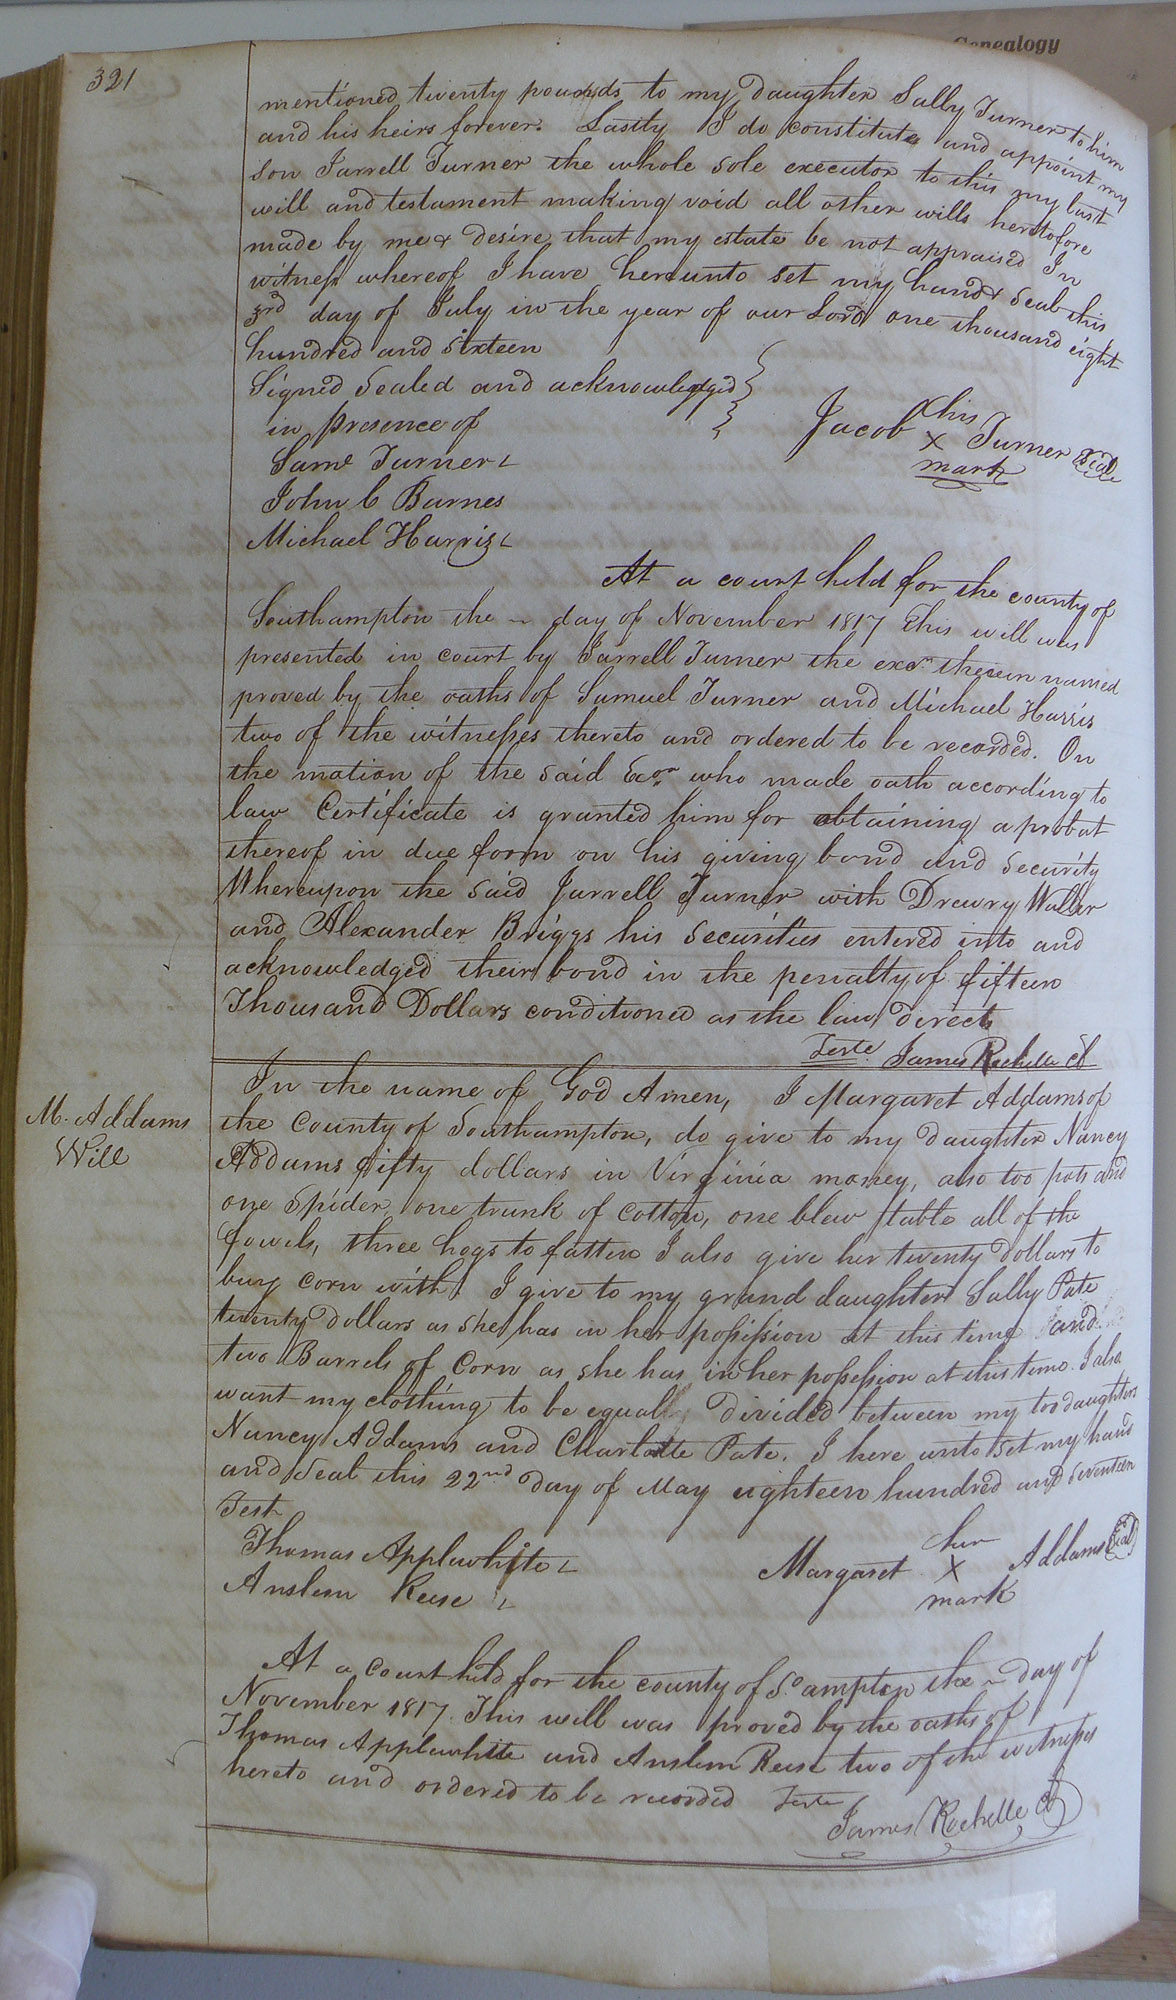 Genealogy
321
mentioned twenty pounds to my daughter Sally Turner to him
and his heirs forever. Lastly I do constitute and appoint my
son Jarrell Turner the whole sole executor to this my last
will and testament making void all other wills heretofore
made by me & desire that my estate be not appraised In
witness whereof I have hereunto set my hand & Seal this
3rd day of July in the year of our Lord one thousand eight
hundred and sixteen
Signed Sealed and acknowledged
in presence of
Jacob his X mark Turner Seal
Saml Turner
John C Barnes
Michael Harris
At a court held for the county of
Southampton the ~ day of November 1817 This will was
presented in court by Jarrell Turner the exor therein named
proved by the oaths of Samuel Turner and Michael Harris
two of the witnesses thereto and ordered to be recorded. On
the motion of the said Exor who made oath according to
law Certificate is granted him for obtaining a probat
thereof in due form on his giving bond and security
Whereupon the said Jarrell Turner with Drewry Waller
and Alexander Briggs his Securities entered into and
acknowledged their bond in the penalty of fifteen
Thousand Dollars conditioned as the law directs
Teste James Rochelle Cl
M. Addams
Will
In the name of God Amen, I Margaret Addams of
the County of Southampton, do give to my daughter Nancy
Addams fifty dollars in Virginia money, also too pots and
one Spider, one trunk of Cotton, one blew table all of the
fowels, three hogs to fatten I also give her twenty Dollars to
buy corn with. I give to my grand daughter Sally Pate
twenty Dollars as she has in her possession at this time and
two Barrels of Corn as she has in her possession at this time. I also
want my clothing to be equally Divided between my too daughters
Nancy Addams and Charlotte Pate. I here unto Set my hand
and Seal this 22nd Day of May eighteen hundred and Seventeen
Test
Thomas Applewhite
Margaret her X mark Addams Seal
Anslem Reese
At a Court held for the county of So.ampton the ~ day of
November 1817. This will was proved by the oaths of
Thomas Applewhite and Anslem Reese two of the witnesses
hereto and ordered to be recorded Teste
James Rochelle Cl